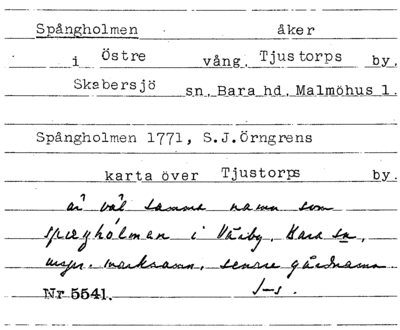 Spångholmen åker
i Östre vång. Tjustorps by.
Skabersjö sn. Bara hd. Malmöhus l.
Spångholmen 1771, S.J.Örngrens
karta över Tjustorps by.
är väl samma namn som
i Värby, Bara sn,
urspr. marknamn, senare gårdnamn
Nr 5541. J-s.